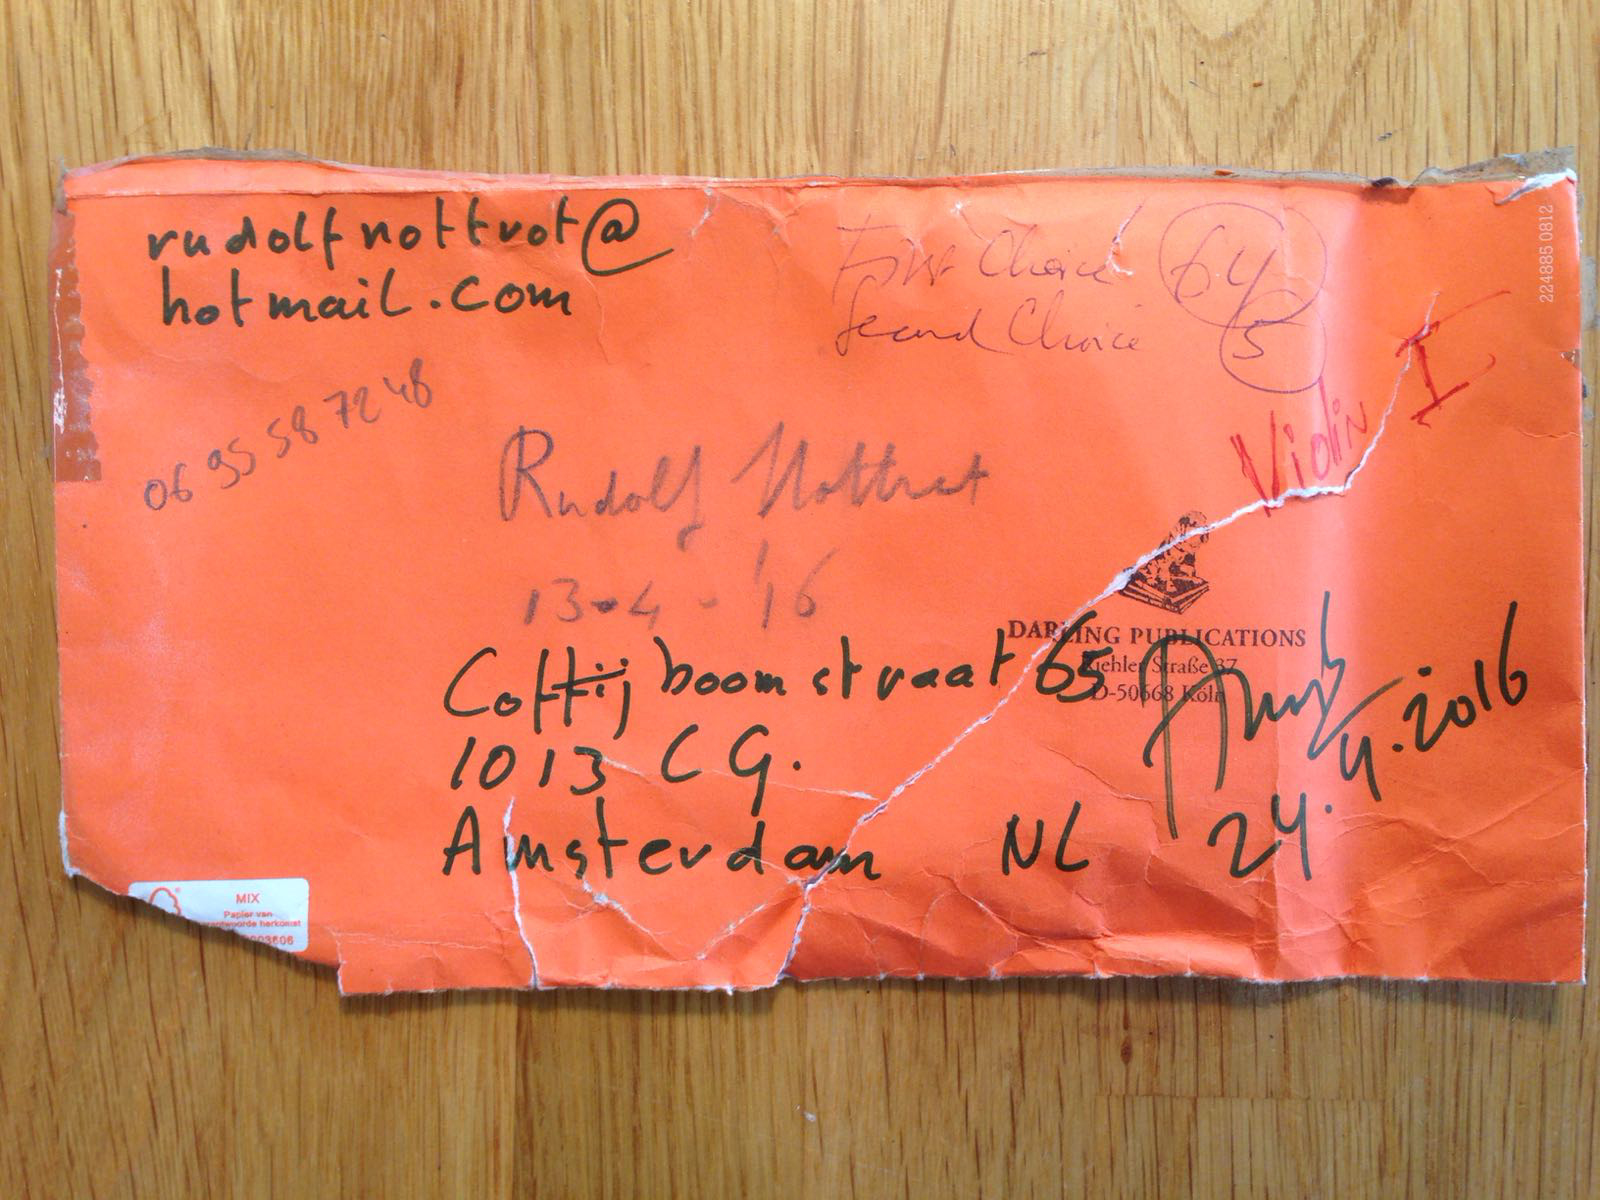 rudolfnottrot@
hotmail.com
First Choice 64
Second Choice 5
224885 0812
Violin I
06 95 58 72 48
Rudolf Nottrot
13-4-'16
DARLING PUBLICATIONS
Riehler Straße 37
D-50668 Köln
Cottijboomstraat 65
1013 CG.
Amsterdam NL
24.4.2016
MIX
Papier van
verantwoorde herkomst
003606